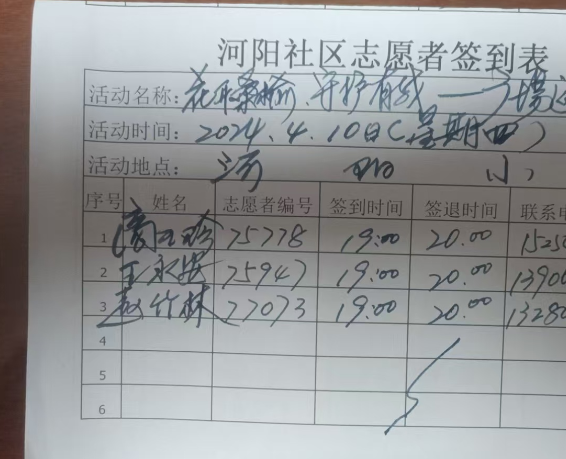 河阳社区志愿者签到表
活动名称:花 桑榆、守护有我——
活动时间:2024.4.10日(星期四)
活动地点: 河 阳 小
序号 姓名 志愿者编号 签到时间 签退时间 联系电
1 75778 19:00 20.00 1525
2 王永安 75947 19:00 20.00 1390
3 赵竹林 77073 19:00 20.00 13280
4
5
6